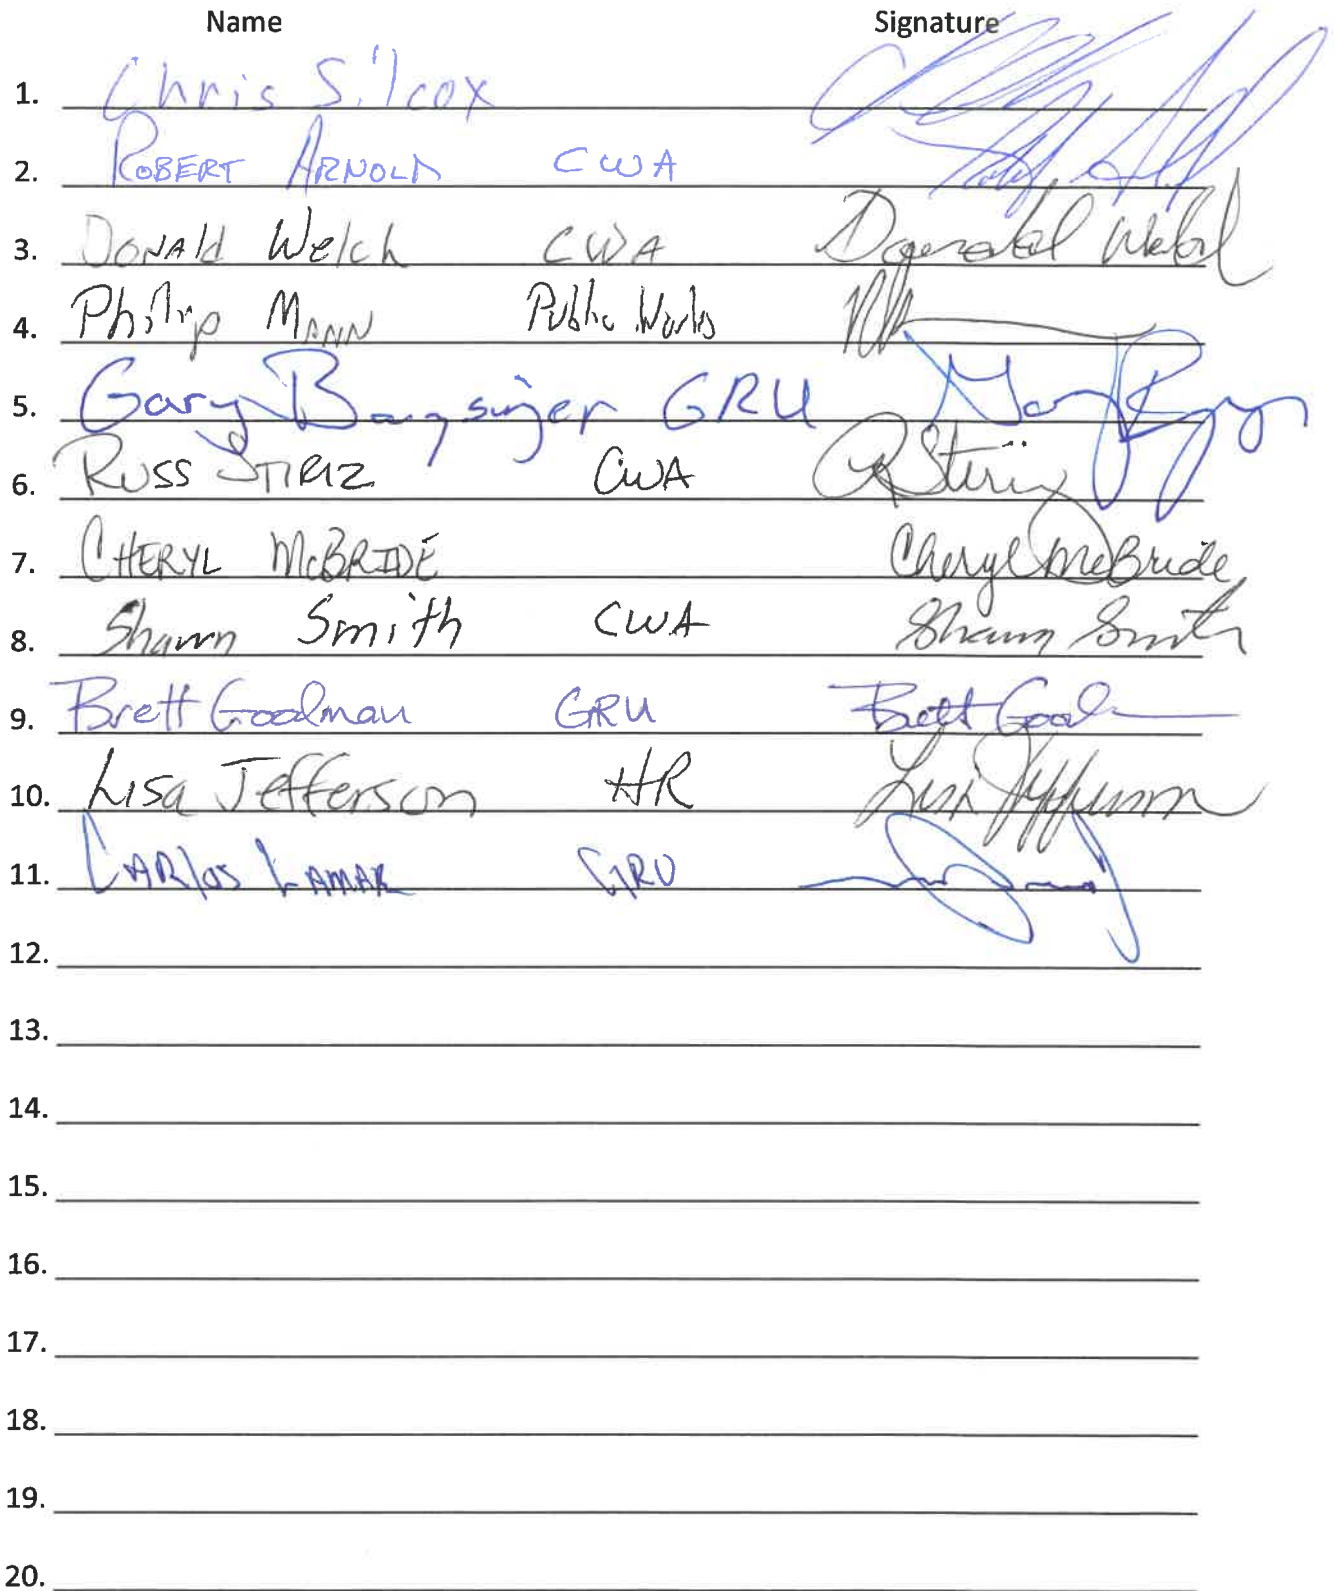 Name Signature
1. Chris Silcox
2. ROBERT ARNOLD CWA
3. DONAld Welch CWA Donald Welch
4. Philip MANN Public Works
5. Gary GRU Gary
6. RUSS STIRIZ CWA RStiriz
7. CHERYL McBRIDE Cheryl McBride
8. Shawn Smith CWA Shawn Smith
9. Brett Goodman GRU Brett
10. Lisa Jefferson HR Lisa Jefferson
11. CARlos LAMAR GRU
12.
13.
14.
15.
16.
17.
18.
19.
20.